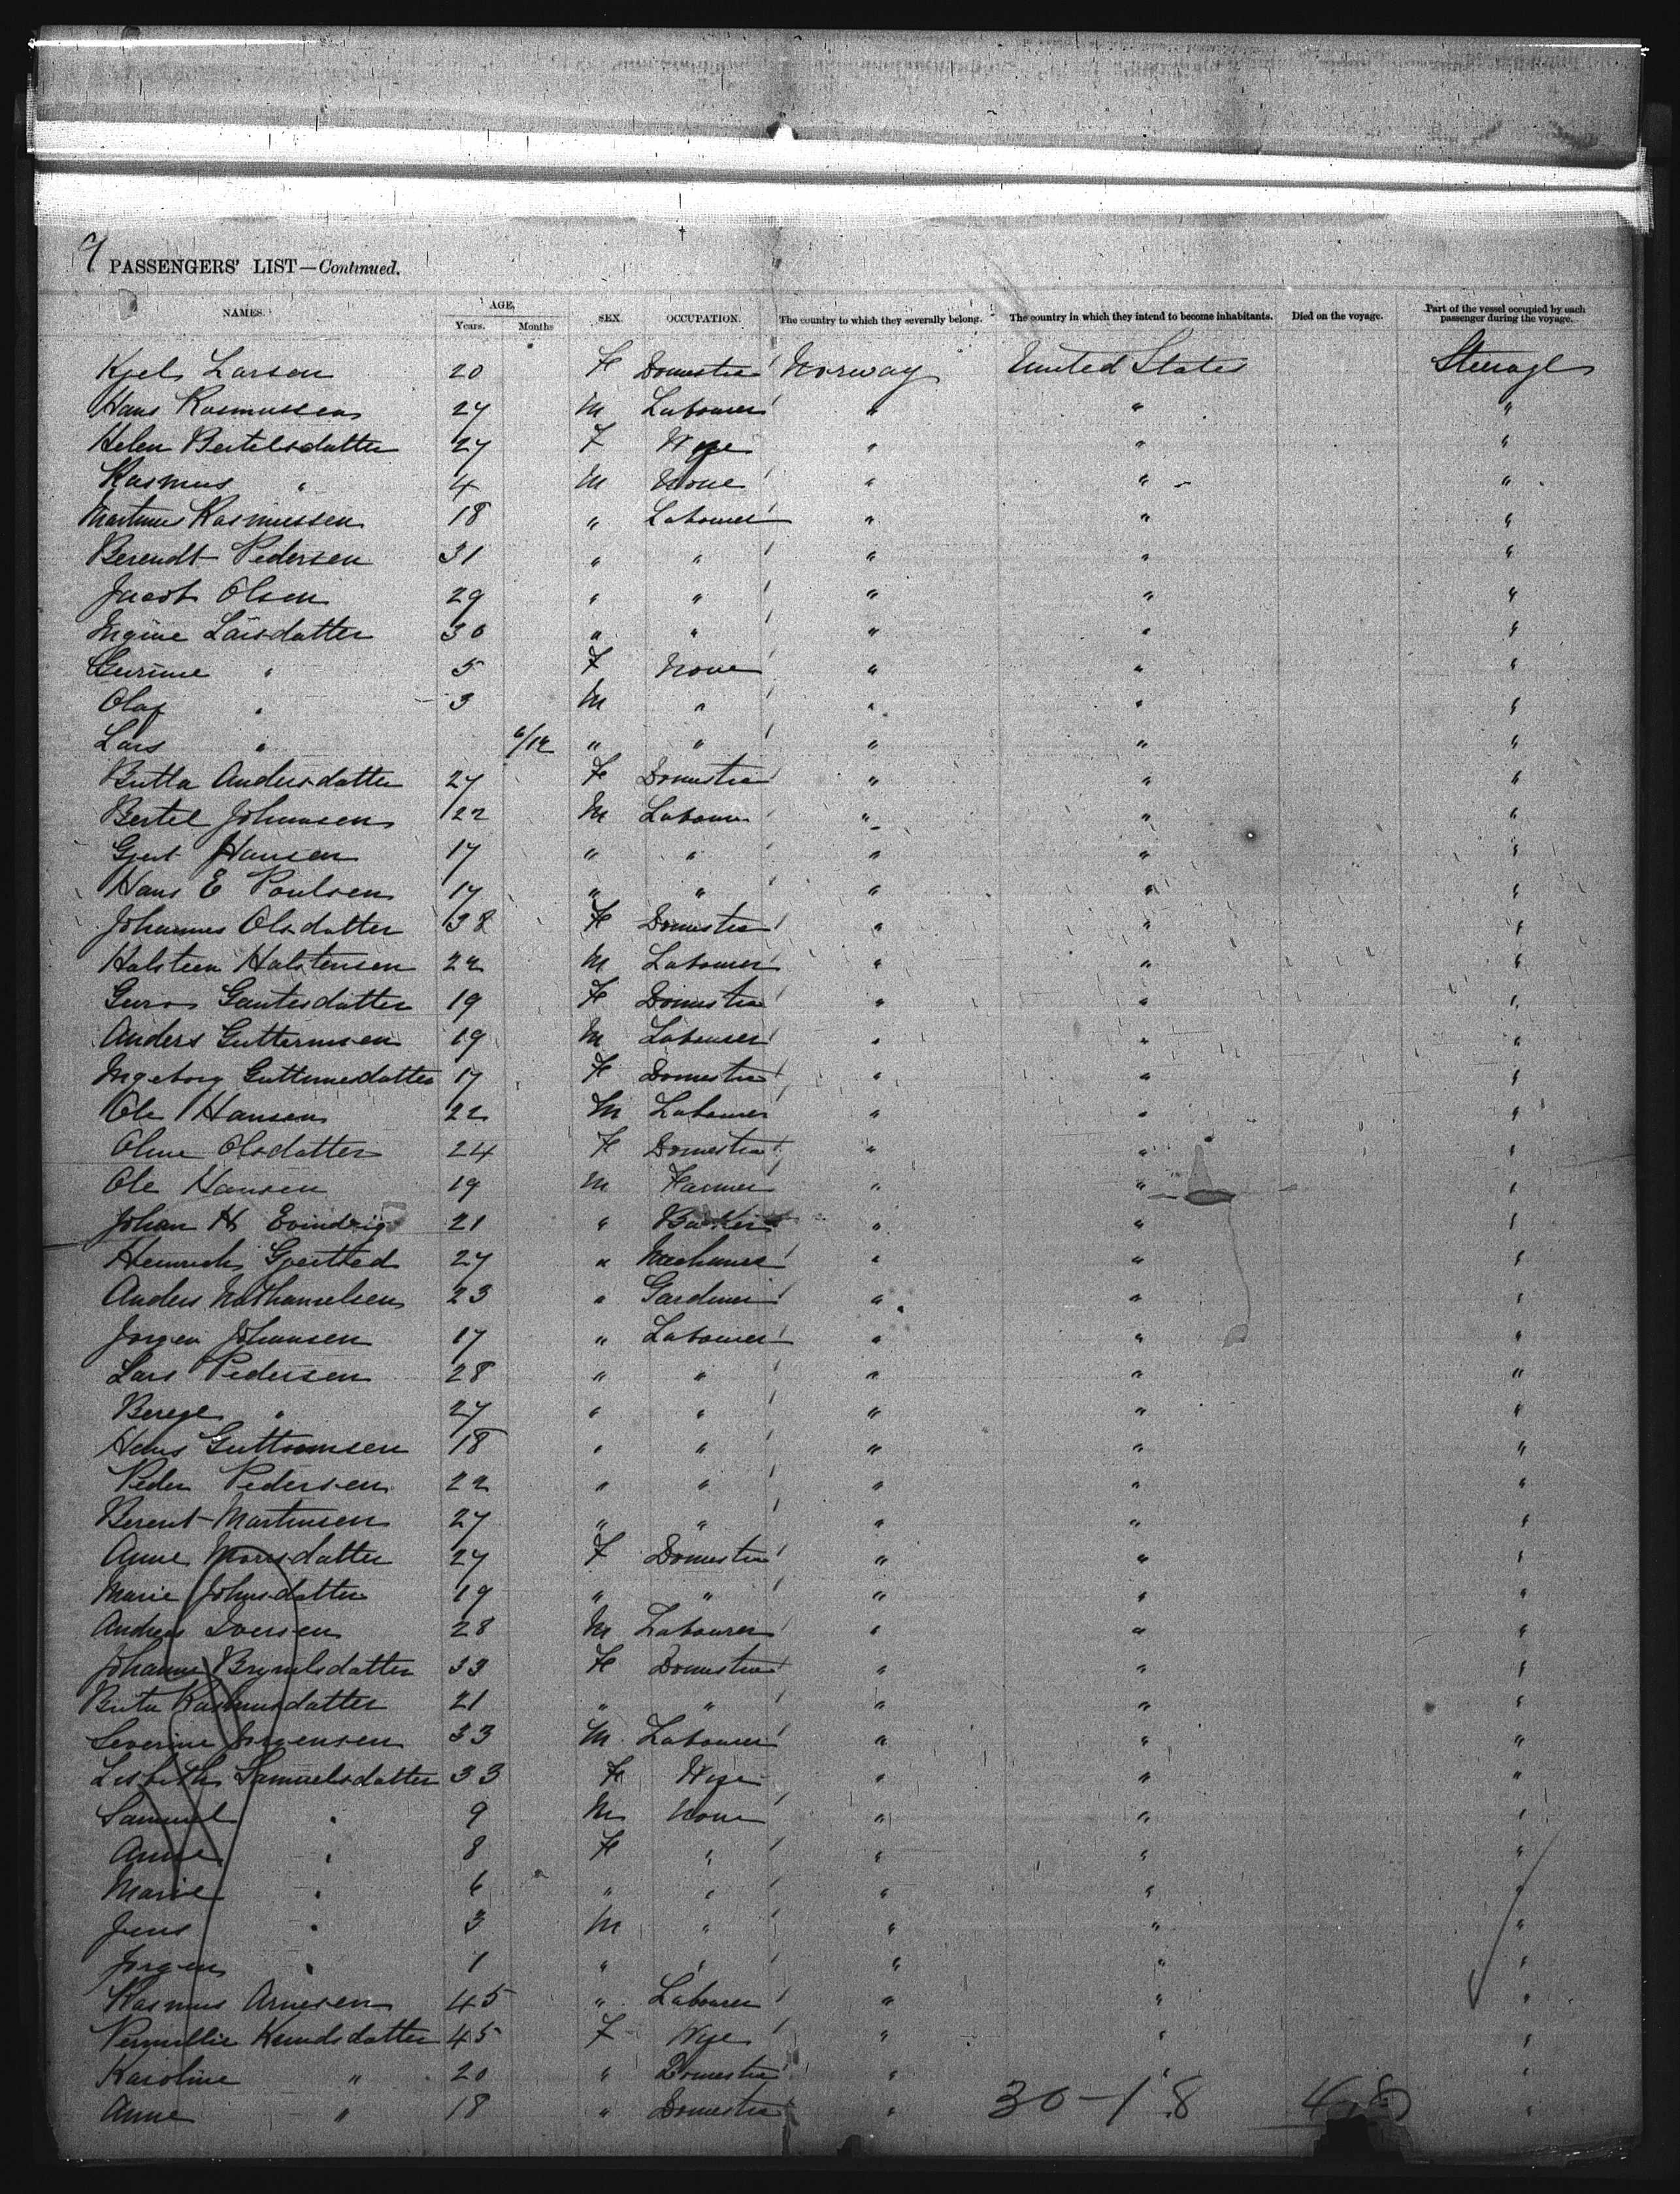 9 PASSENGERS' LIST—Continued.
NAMES. AGE. Years. Months SEX. OCCUPATION. The country to which they severally belong. The country in which they intend to become inhabitants. Died on the voyage. Part of the vessel occupied by each passenger during the voyage.
Larsen 20 F Domestic Norway United States Steerage
Hans Rasmussen 27 M Labourer " " "
Helen Bertelsdatter 27 F Wife " " "
Rasmus " 4 M None " " "
Martinus Rasmussen 18 " Labourer " " "
Berendt Pedersen 31 " " " " "
Jacob Olsen 29 " " " " "
Ingine Larsdatter 30 " " " " "
Gurine " 5 F None " " "
Olaf " 3 M " " " "
Lars " 6/12 " " " " "
Andersdatter 27 F Domestic " " "
Bertel Johnnsen 22 M Labour " " "
Gjert Hansen 17 " " " " "
Hans E Poulsen 17 " " " " "
Johannes Olsdatter 38 F Domestic " " "
Halsteen Halstensen 22 M Labourer " " "
Guro Gautesdatter 19 F Domestic " " "
Anders Guttormsen 19 M Labourer " " "
Ingeborg Guttormsdatter 17 F Domestic " " "
Ole Hansen 22 M Labourer " " "
Oline Olsdatter 24 F Domestic " " "
Ole Hansen 19 M Farmer " " "
Johan H 21 " Baker " " "
Heinrich 27 " Mechanic " " "
Anders Nathanielsen 23 " Gardener " " "
Jorgen Johnnsen 17 " Labourer " " "
Lars Pedersen 28 " " " " "
" 27 " " " " "
Hans Guttormsen 18 " " " " "
Peder Pedersen 22 " " " " "
Berent Martinsen 27 " " " " "
Anne Monsdatter 27 F Domestic " " "
Marie Johnsdatter 19 " " " " "
Andreas Iversen 28 M Labourer " " "
Johanne Brynilsdatter 33 F Domestic " " "
Rasmusdatter 21 " " " " "
Severine Jorgensen 33 M Labourer " " "
Lisbeth Samuelsdatter 33 F Wife " " "
Samuel " 9 M None " " "
Anne " 8 F " " " "
Marie " 6 " " " " "
Jens " 3 M " " " "
Jorgen " 1 " " " " "
Rasmus Arnesen 45 " Labourer " " "
Pernillie Knudsdatter 45 F Wife " " "
Karoline " 20 " Domestic " " "
Anne " 18 " Domestic " "
30-18 48